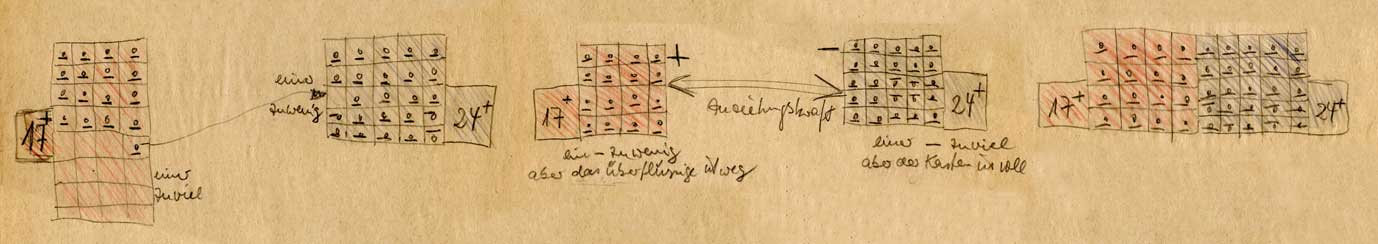 17+
einer
zuviel
einer
zuwenig
24+
17+
+
ein – zuwenig
aber das Überflüssige ist weg
Anziehungskraft
–
24+
einer – zuviel
aber der Kasten ist voll
17+
24+